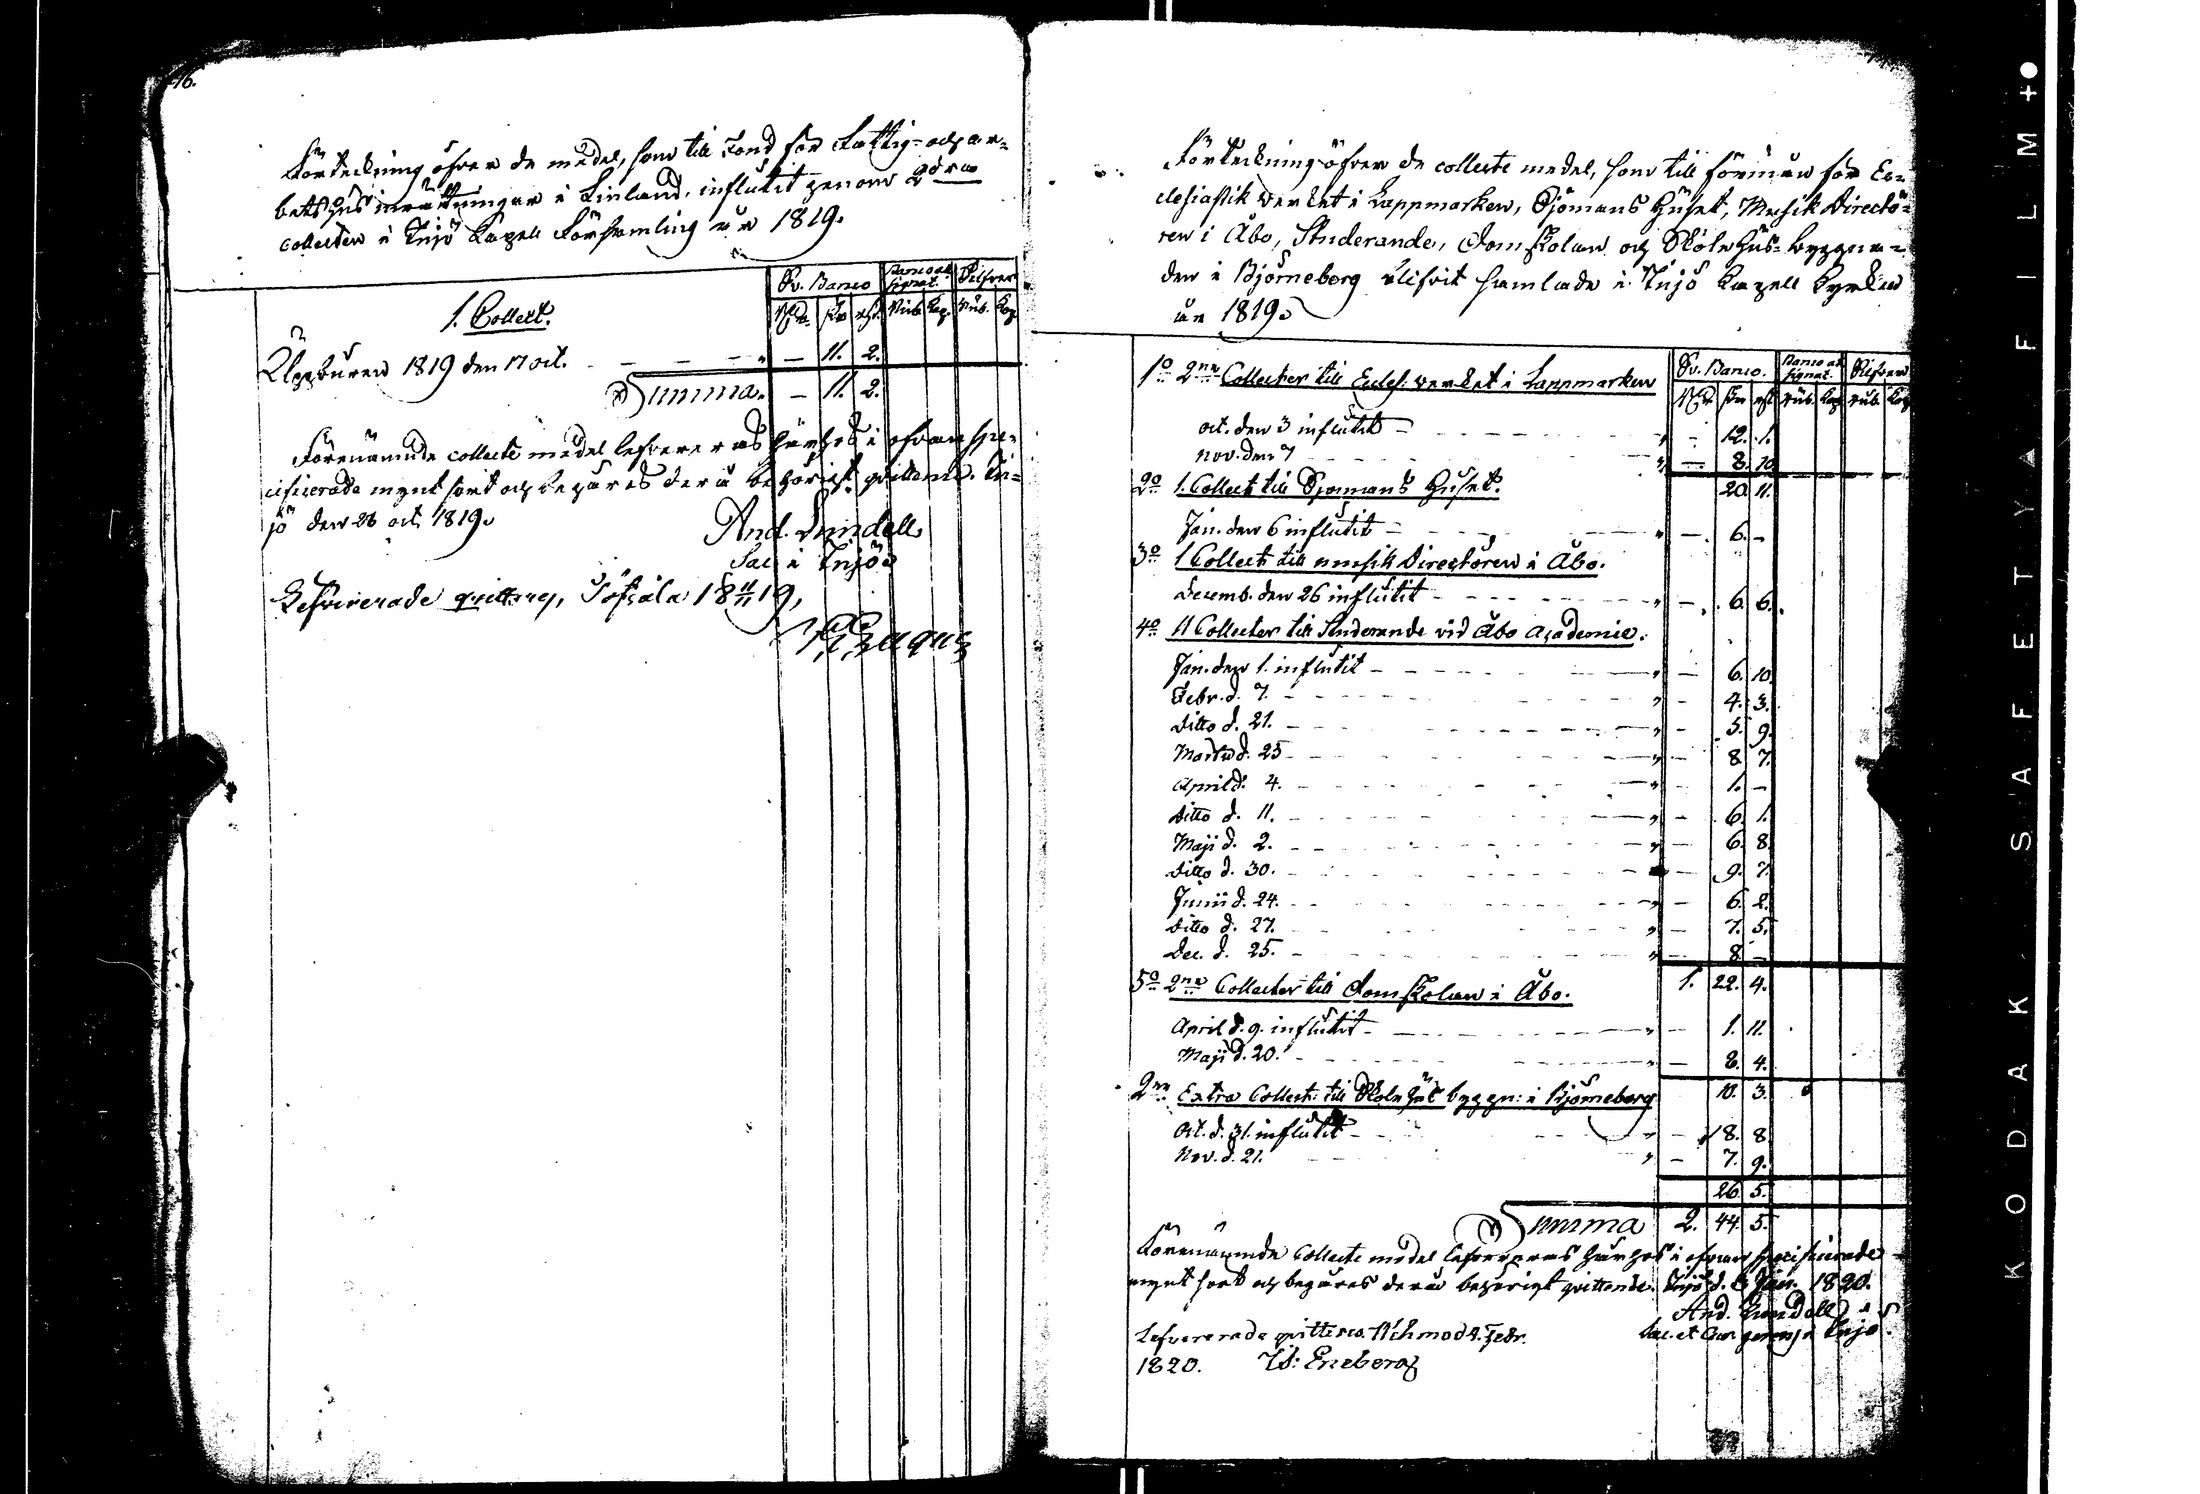 46.
Förteckning öfver de medel, som till Fond för Fattig- och ar-
betshus inrättningar i Finland, influtit genom 2dra
collecten i Injö Capell Församling år 1819.
Sv. Banco Banco assignat. Silfver
1. Collect.
Rd. sk. rst. Rub. Kop. Rub. Kop.
Uppburen 1819 den 17 oct. — — — " — 11. 2.
Summa. — 11. 2.
Förenämnde collecte medel lefvereras härhos i ofvan spe-
cificerade mynt sort och begäres derå behörigt qvittence. In-
jö den 26 oct. 1819.
And. Lundell
Sac. i Injö
Lefvererade qvitteras, Töfsala 18 11/11 19,
Förteckning öfver de collecte medel, som till förmån för Ec-
clesiastik verket i Lappmarken, Sjömans Huset, Musik Directö-
ren i Åbo, Studerande, Domskolan och Skole Hus-byggna-
den i Björneborg blifvit samlade i Injö Capell Kyrka
år 1819.
1o 2ne Collecter till Eccles: verket i Lappmarken
Sv. Banco. Banco assignat. Silfver
Rd. sk. rst. Rub. Kop. Rub. Kop.
oct. den 3 influtit — " — 12. 1.
nov. den 7 " — 8. 10.
20. 11.
2o 1. Collect till Sjömans Huset.
Jan. den 6 influtit — " — 6. —
3o 1 Collect till musik Directören i Åbo.
Decemb. den 26 influtit — " — 6. 6.
4o 11 Collecter till Studerande vid Åbo Academie.
Jan. den 1. influtit — " — 6. 10.
Febr. d. 7. — " — 4. 3.
Ditto d. 21. — " — 5. 9.
Martii d. 25 — " — 8 7.
April d. 4. — " — 1. —
Ditto d. 11. — " — 6. 1.
Maji d. 2. — " — 6. 8.
Ditto d. 30. — " — 9. 7.
Junii d. 24. — " — 6. 2.
Ditto d. 27. " — 7. 5.
Dec. d. 25. — " — 8 —
1. 22. 4.
5o 2ne Collecter till Domskolan i Åbo.
April d. 9. influtit — " — 1. 11.
Maji d. 20. — " — 8. 4.
10. 3.
2ne Extra Collect: till Skole Hus byggn: i Björneborg
Oct. d. 31. influtit — " — 18. 8
Nov. d. 21. " — 7. 9.
26. 5.
Summa 2. 44. 5.
Förenämnde Collecte medel lefvereras härhos i ofvan specificerade
mynt sort och begäres derå behörigt qvittence. Injö d. 6 Jan. 1820.
And. Lundell
Sac. et Cur. gerens i Injö.
Lefvererade qvitteras. Nehmo d 4. Febr.
1820. Is: Eneberg
KODAK SAFETY FILM